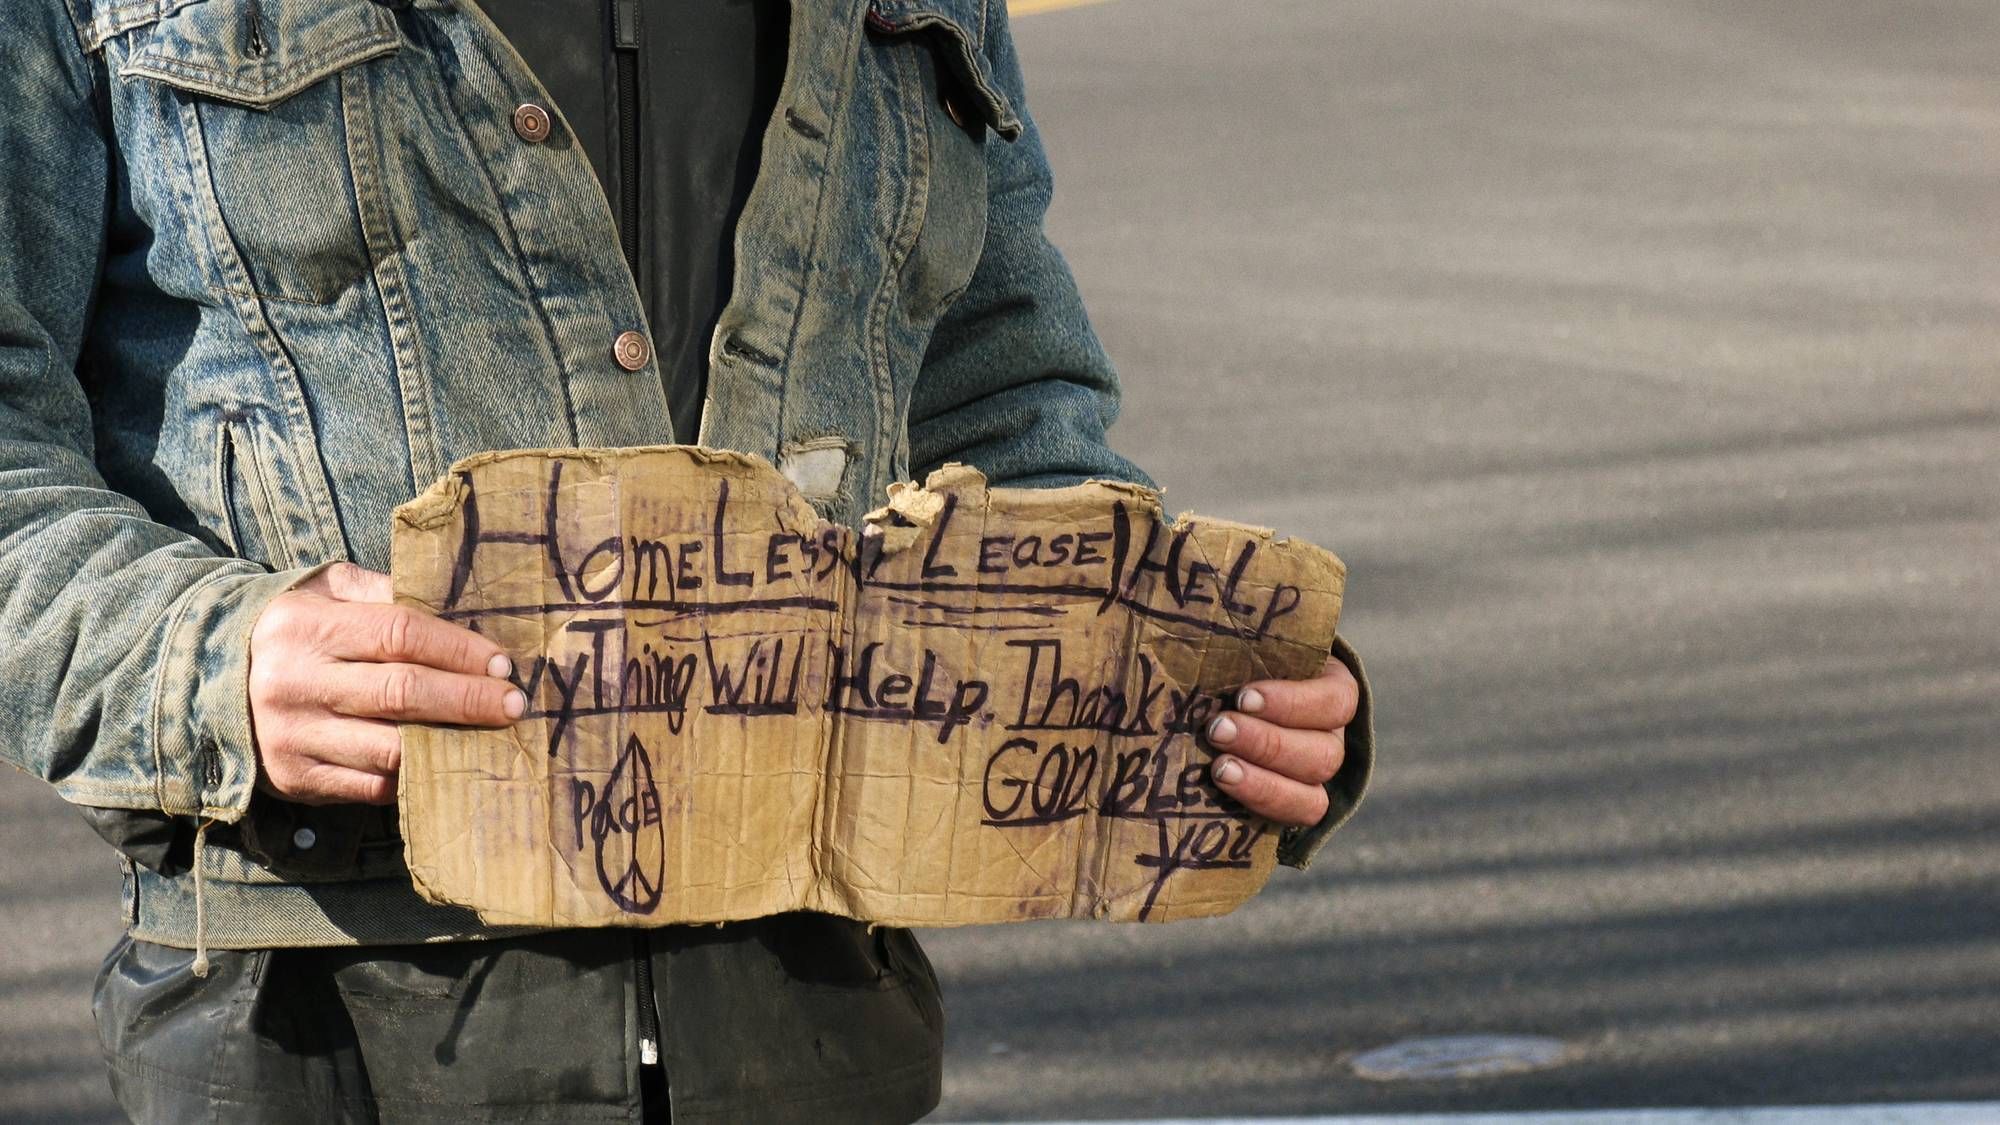 HomeLess PLease HeLp
AnyThing Will HeLp. Thank you
GOD BLess
you
PaCE